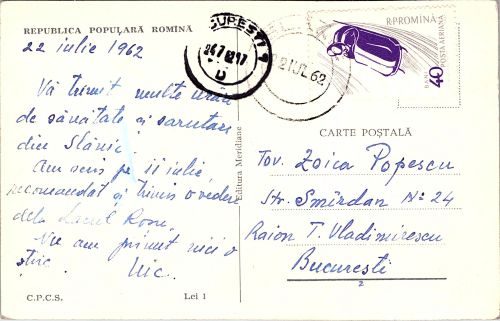 REPUBLICA POPULARĂ ROMÎNĂ
22 iulie 1962
Vă trimit multe urări
de sănătate și sărutări
din Slănic.
Am scris pe 11 iulie,
recomandat și trimis o vedere
dela Lacul Roșu,
Nu am primit nici o
știre.
C.P.C.S.
Lei 1
Editura Meridiane
BUCUREȘTI 9
24.7.62.17
D
22 IUL. 62
R.P.ROMÎNĂ
POSTA AERIANA
40
BANI
CARTE POȘTALĂ
Tov. Zoica Popescu
Str. Smîrdan No 24
Raion T. Vladimirescu
București
2